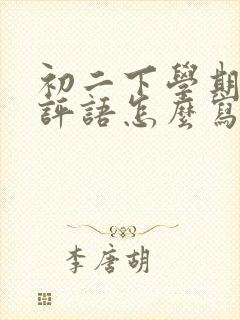 初二下學期
評語怎麼寫
李唐胡